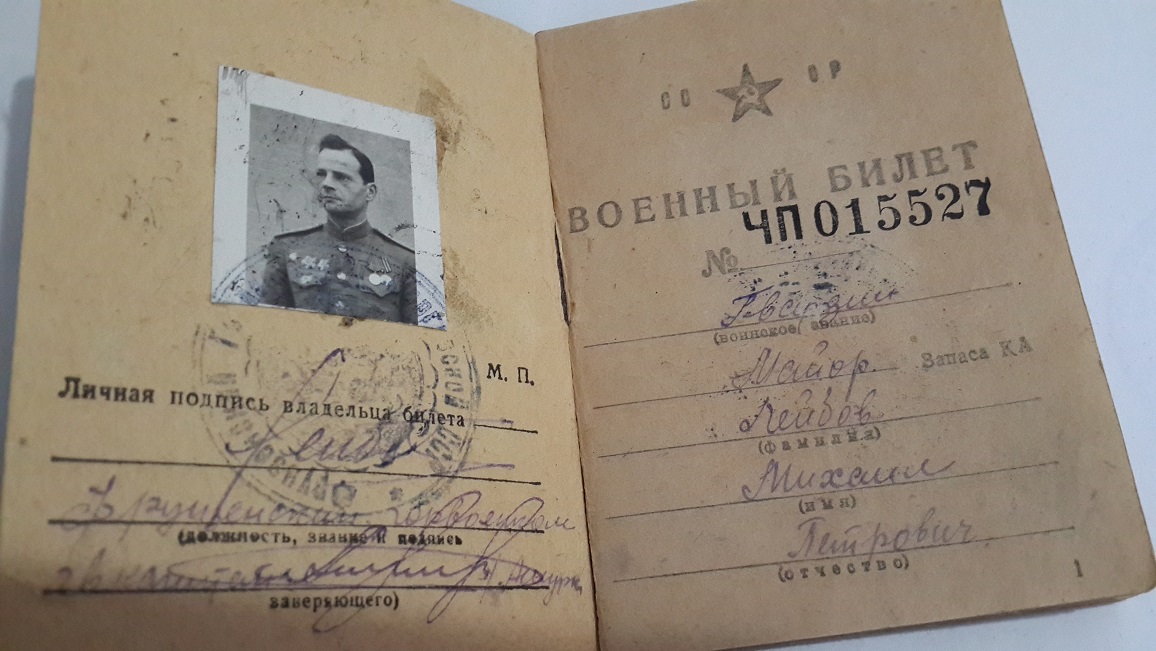 М. П.
Личная подпись владельца билета
(должность, звание и подпись
гв капитан
заверяющего)
СС СР
ВОЕННЫЙ БИЛЕТ
№ ЧП 015527
Гвардии
(воинское звание)
Майор Запаса КА
Лейбов
(фамилия)
Михаил
(имя)
Петрович
(отчество)
1